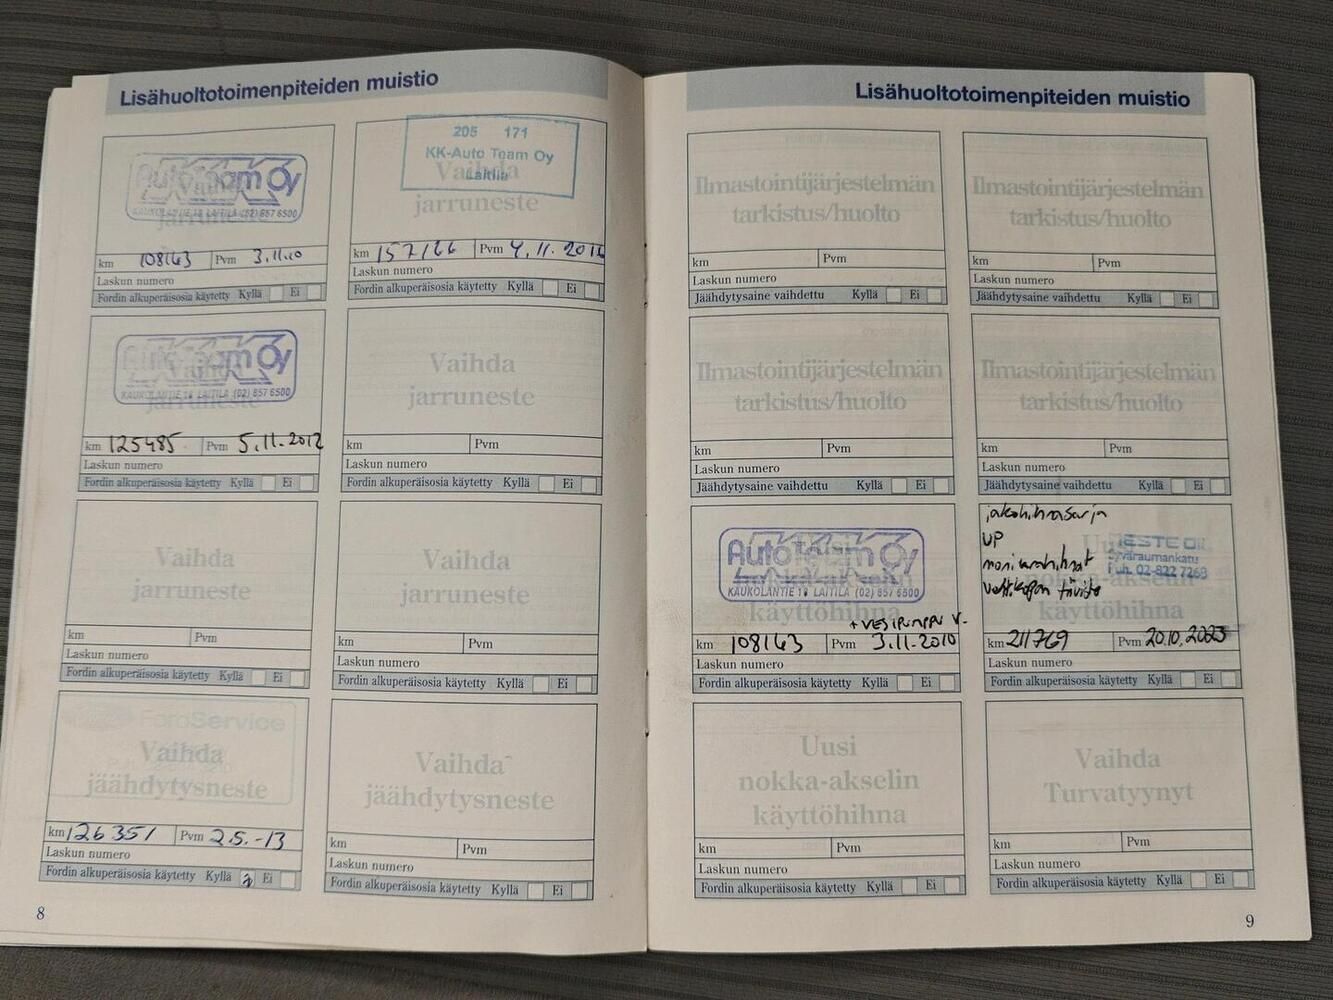 Lisähuoltotoimenpiteiden muistio
AutoTeam Oy
KAUKOLANTIE 18 LAITILA (02) 857 6500
Vaihda
jarruneste
km 108163 Pvm 3.11.10
Laskun numero
Fordin alkuperäisosia käytetty Kyllä Ei
205 171
KK-Auto Team Oy
Laitila
Vaihda
jarruneste
km 157166 Pvm 4.11.2016
Laskun numero
Fordin alkuperäisosia käytetty Kyllä Ei
AutoTeam Oy
KAUKOLANTIE 18 LAITILA (02) 857 6500
Vaihda
jarruneste
km 125485 Pvm 5.11.2012
Laskun numero
Fordin alkuperäisosia käytetty Kyllä Ei
Vaihda
jarruneste
km Pvm
Laskun numero
Fordin alkuperäisosia käytetty Kyllä Ei
Vaihda
jarruneste
km Pvm
Laskun numero
Fordin alkuperäisosia käytetty Kyllä Ei
Vaihda
jarruneste
km Pvm
Laskun numero
Fordin alkuperäisosia käytetty Kyllä Ei
FordService
Vaihda
jäähdytysneste
km 126351 Pvm 2.5.-13
Laskun numero
Fordin alkuperäisosia käytetty Kyllä Ei
Vaihda
jäähdytysneste
km Pvm
Laskun numero
Fordin alkuperäisosia käytetty Kyllä Ei
8
Lisähuoltotoimenpiteiden muistio
Ilmastointijärjestelmän
tarkistus/huolto
km Pvm
Laskun numero
Jäähdytysaine vaihdettu Kyllä Ei
Ilmastointijärjestelmän
tarkistus/huolto
km Pvm
Laskun numero
Jäähdytysaine vaihdettu Kyllä Ei
Ilmastointijärjestelmän
tarkistus/huolto
km Pvm
Laskun numero
Jäähdytysaine vaihdettu Kyllä Ei
Ilmastointijärjestelmän
tarkistus/huolto
km Pvm
Laskun numero
Jäähdytysaine vaihdettu Kyllä Ei
Uusi
AutoTeam Oy
nokka-akselin
KAUKOLANTIE 18 LAITILA (02) 857 6500
käyttöhihna
+ VESIPUMPPU V.
km 108163 Pvm 3.11.2010
Laskun numero
Fordin alkuperäisosia käytetty Kyllä Ei
jakohihnasarja
VP
moniurahihnat
venttkopan tiiviste
NESTE OIL
Syväraumankatu
Puh. 02-822 7268
Uusi
nokka-akselin
käyttöhihna
km 211769 Pvm 20.10.2023
Laskun numero
Fordin alkuperäisosia käytetty Kyllä Ei
Uusi
nokka-akselin
käyttöhihna
km Pvm
Laskun numero
Fordin alkuperäisosia käytetty Kyllä Ei
Vaihda
Turvatyynyt
km Pvm
Laskun numero
Fordin alkuperäisosia käytetty Kyllä Ei
9